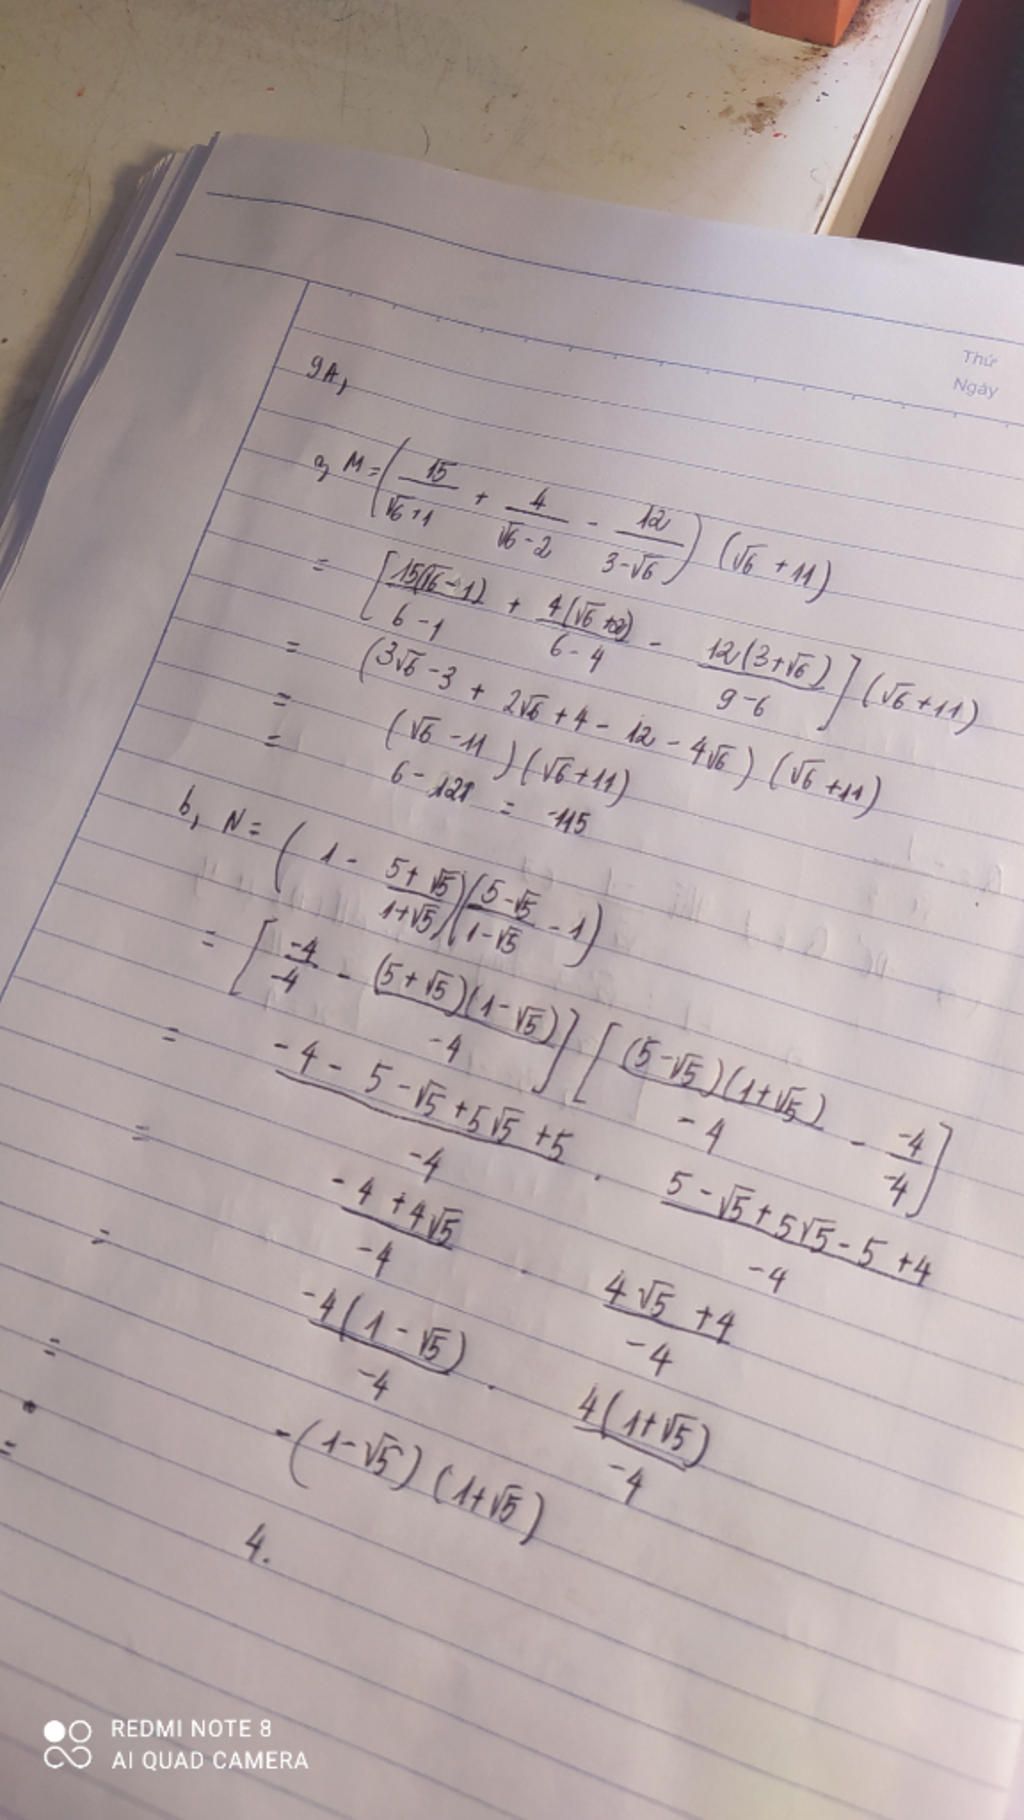 Thứ
Ngày
9A,
a, M = ( 15/(√6+1) + 4/(√6-2) - 12/(3-√6) ) (√6 + 11)
= [ 15(√6-1)/(6-1) + 4(√6+2)/(6-4) - 12(3+√6)/(9-6) ] (√6+11)
= (3√6 - 3 + 2√6 + 4 - 12 - 4√6) (√6 + 11)
= (√6 - 11) (√6 + 11)
= 6 - 121 = -115
b, N = ( 1 - (5+√5)/(1+√5) ) ( (5-√5)/(1-√5) - 1 )
= [ -4/-4 - (5+√5)(1-√5)/-4 ] [ (5-√5)(1+√5)/-4 - -4/-4 ]
= (-4 - 5 - √5 + 5√5 + 5)/-4 . (5 - √5 + 5√5 - 5 + 4)/-4
= (-4 + 4√5)/-4 . (4√5 + 4)/-4
= -4(1 - √5)/-4 . 4(1+√5)/-4
= -(1-√5) (1+√5)
= 4.
REDMI NOTE 8
AI QUAD CAMERA